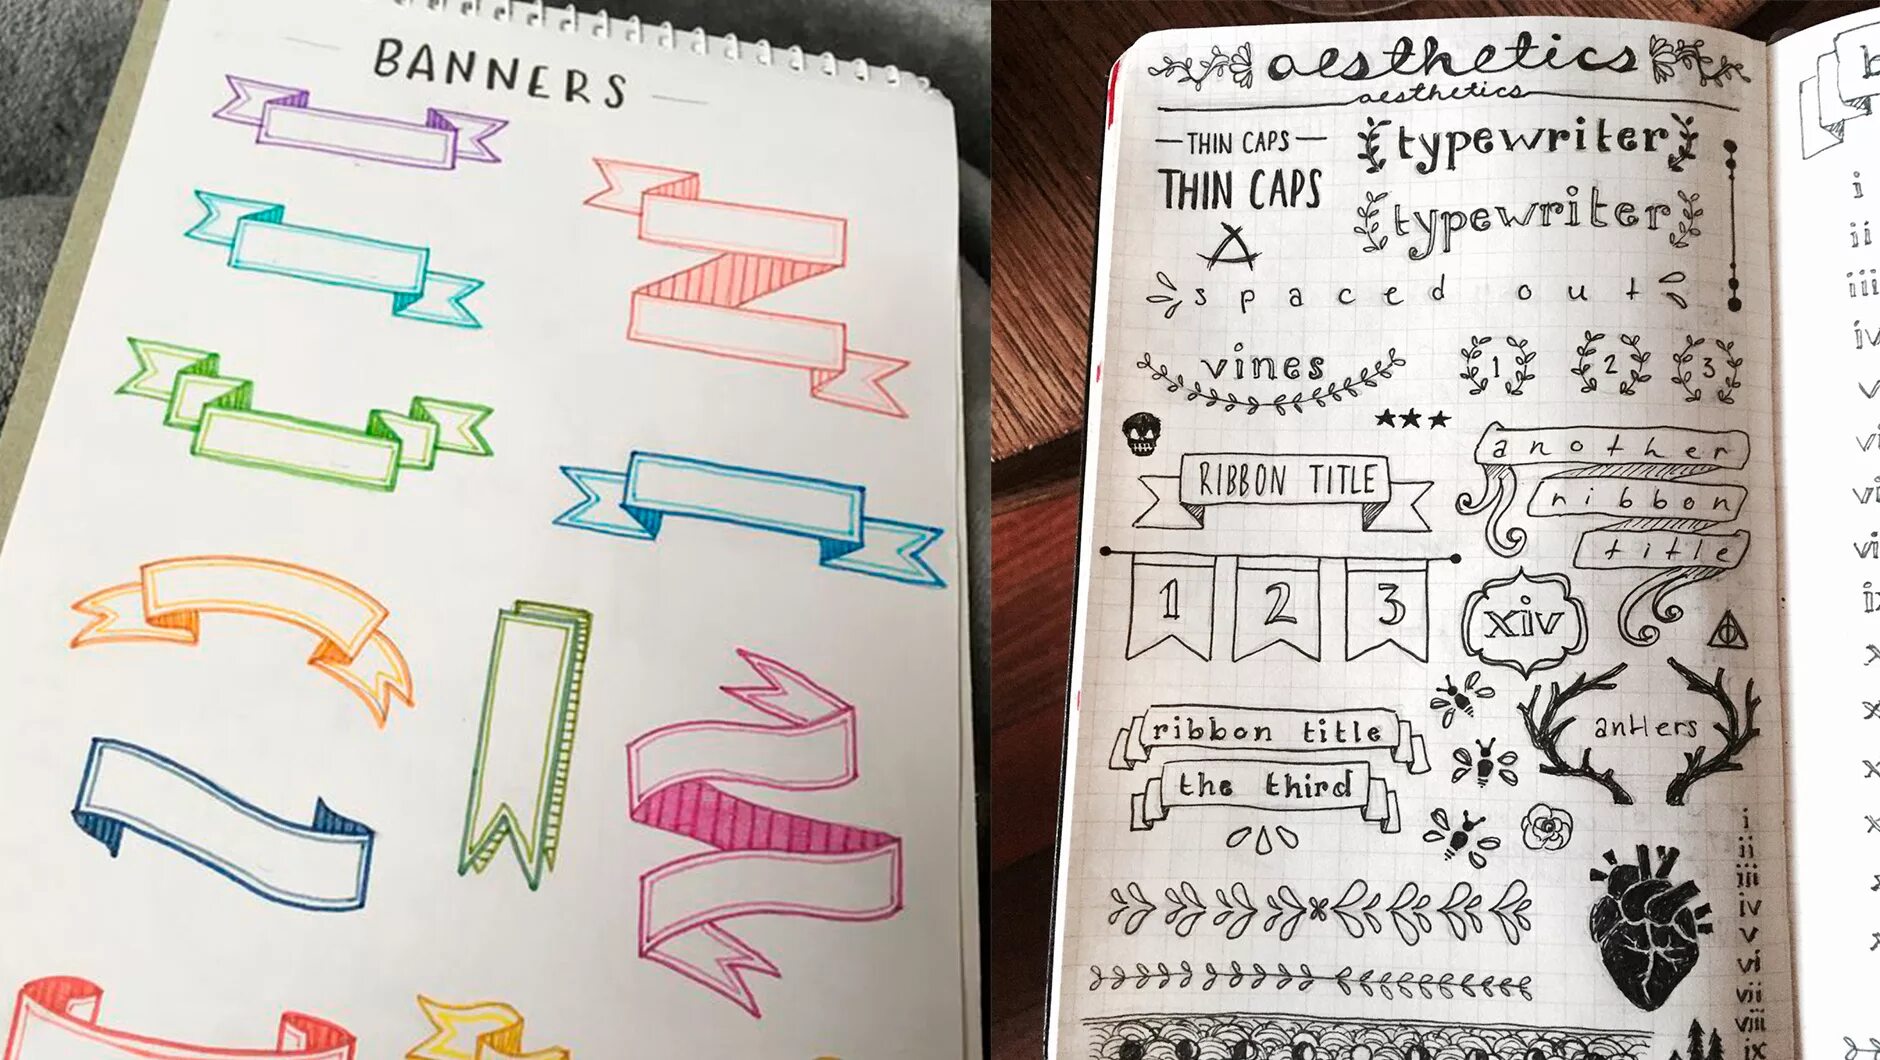 BANNERS
aesthetics
aesthetics
THIN CAPS
THIN CAPS
typewriter
typewriter
spaced out
vines
1 2 3
RIBBON TITLE
another
ribbon
title
1 2 3
xiv
ribbon title
the third
antlers
i
ii
iii
iv
v
vi
vii
viii
ix
b
i
ii
iii
iv